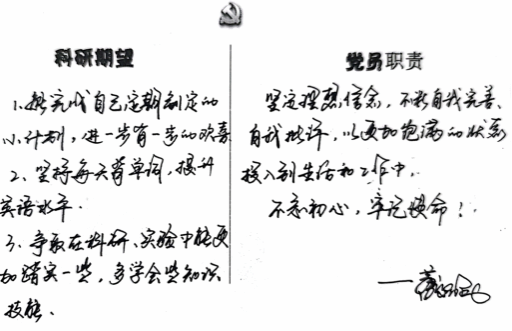 科研期望
1.按完成自己定期制定的
小计划，进一步有一步的欢喜
2、坚持每天背单词，提升
英语水平.
3、争取在科研、实验中能更
加踏实一些，多学会些知识
技能、
党员职责
坚定理想信念，不断自我完善、
自我批评，以更加饱满的状态
投入到生活和工作中，
不忘初心，牢记使命！